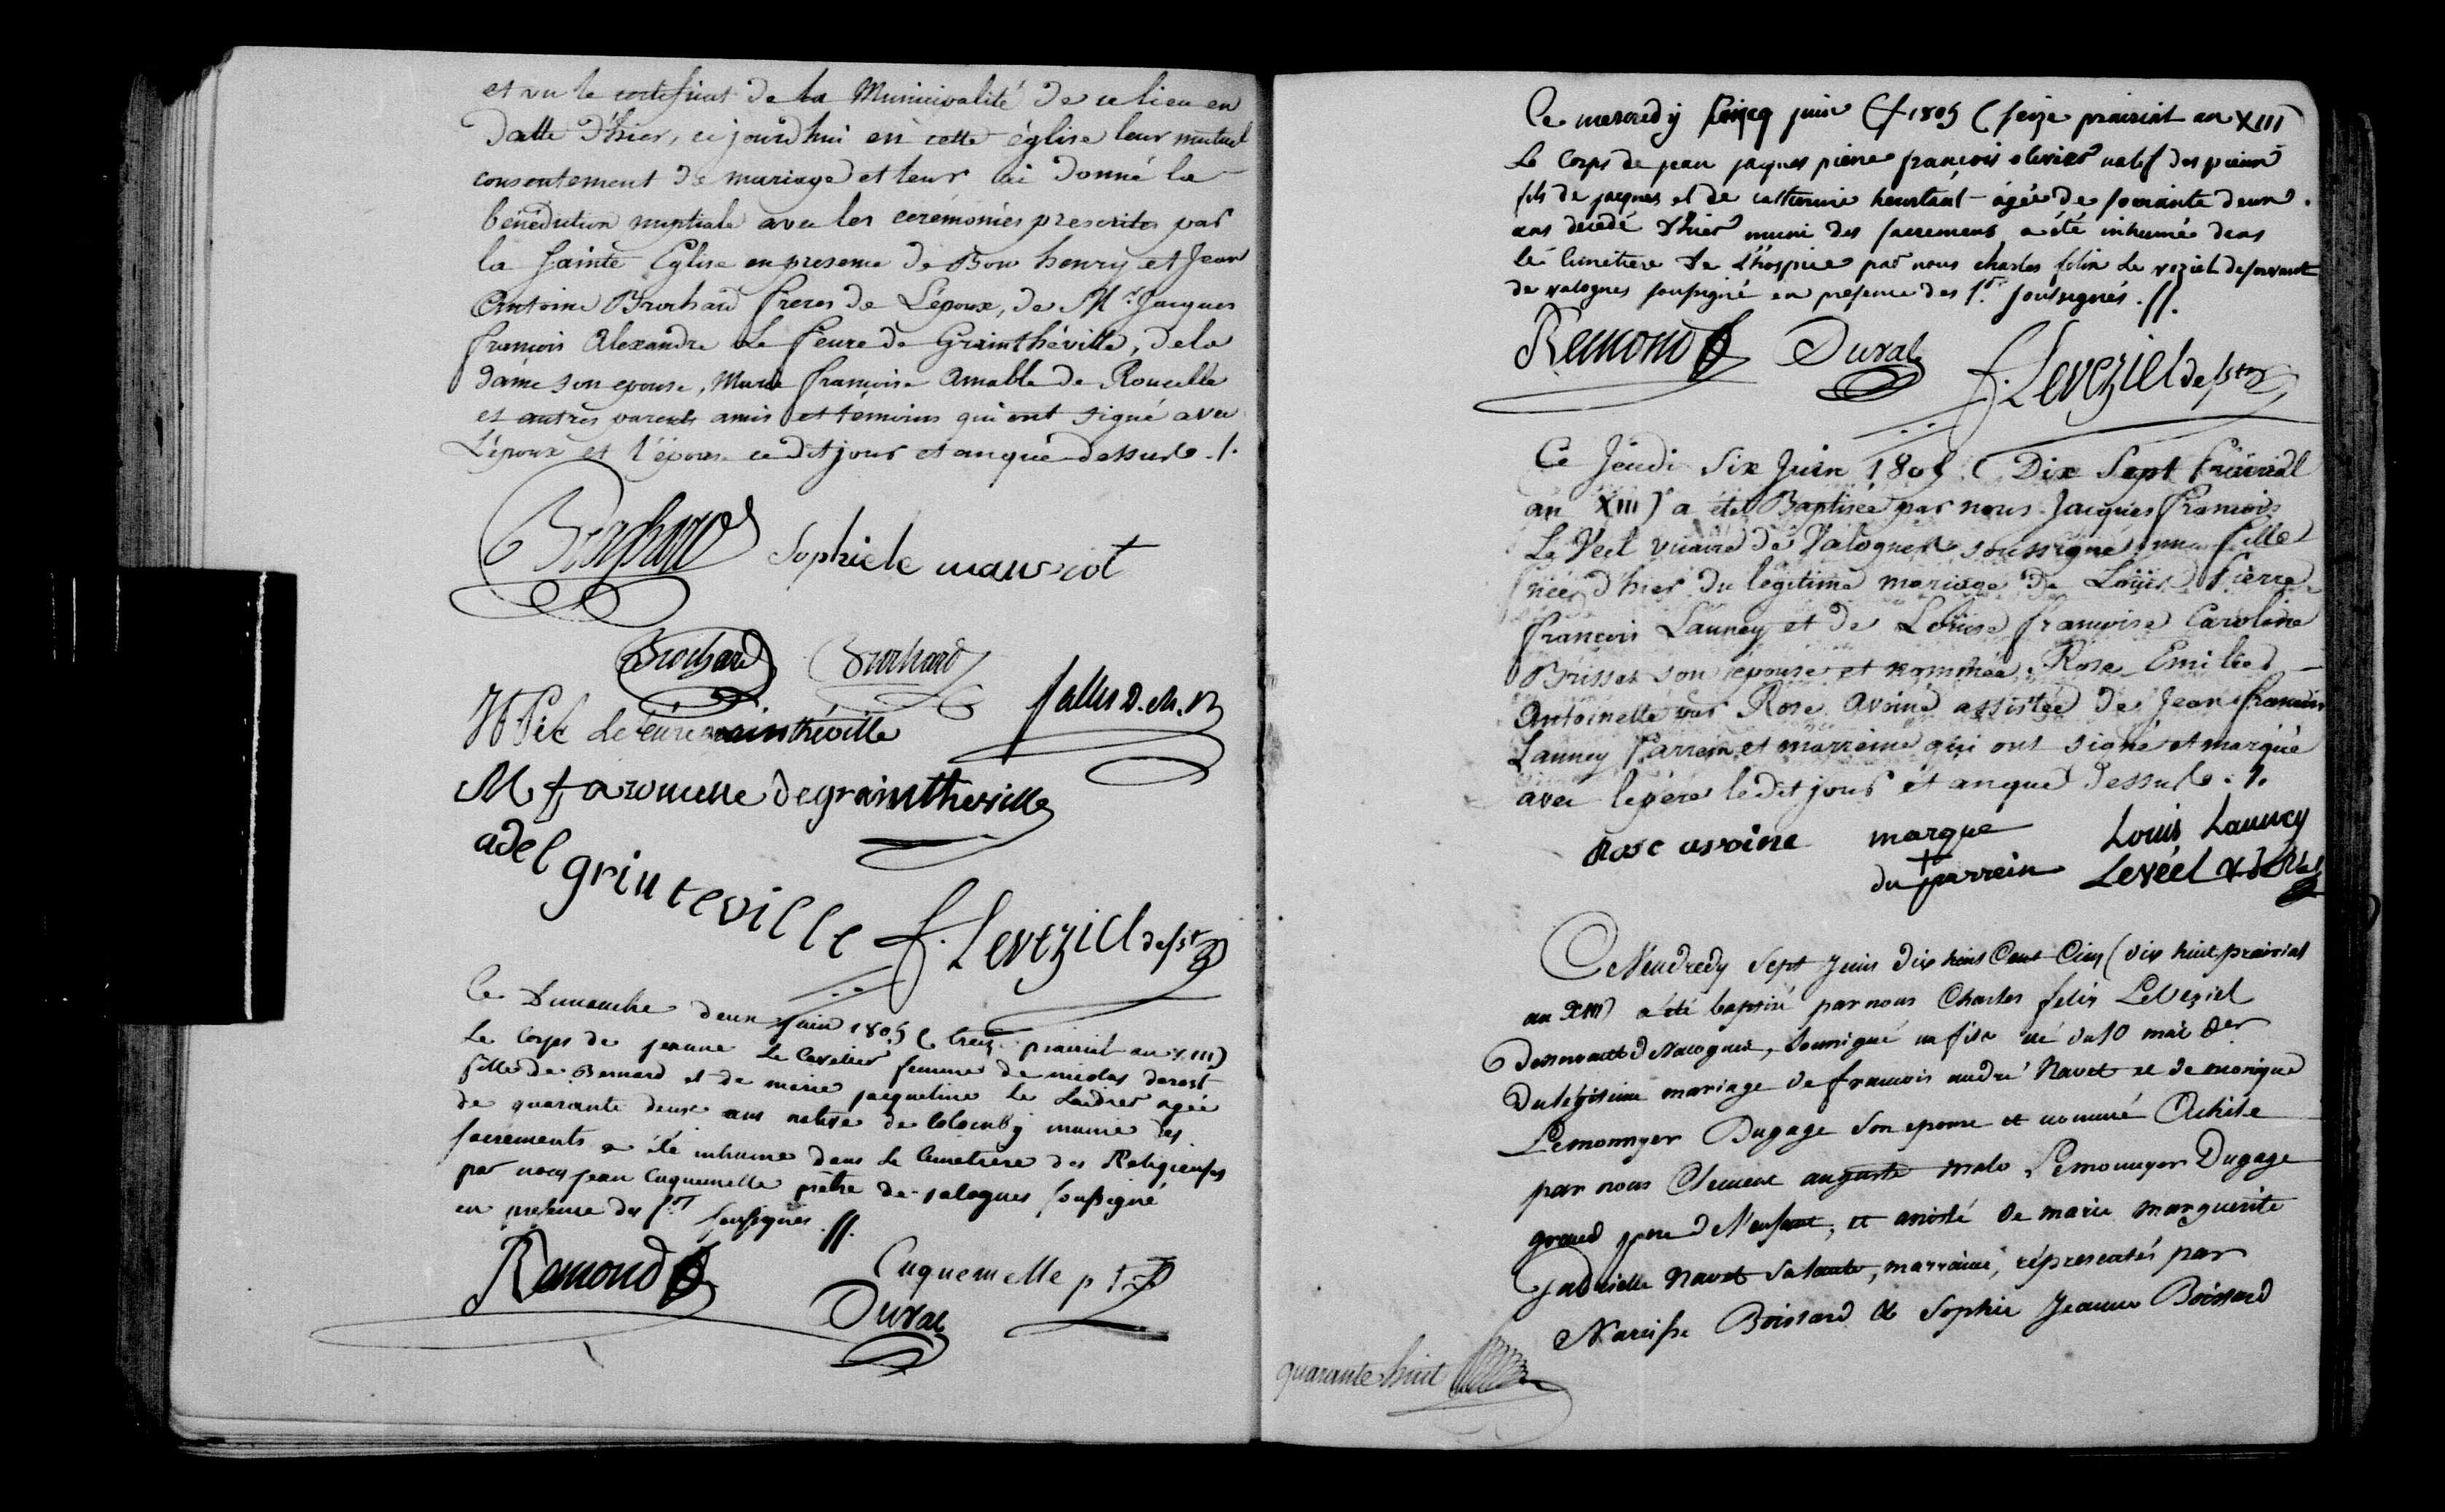 et vu le certificat de la Municipalité de ce lieu en
datte d'hier, ce jourdhui en cette église leur mutuel
consentement de mariage et leur ai donné la
bénédiction nuptiale avec les cerémonies prescrites par
la Sainte Eglise en presence de Bon henry et Jean
Antoine Brochard freres de L'époux, de Mr Jacques
françois Alexandre Le feure de Grainthéville, de la
dame son epouse, Marie françoise Amable de Roucelle
et autres parents amis et témoins qui ont signé avec
L'époux et l'épouse ce dit jour et an que dessus ./.
Brochard Sophie le mauviot
Brochard Brochard
le feure grainthéville
M f a roucelle de graintheville
adel grinteville f. Leveziel desst
Ce Dimanche deux juin 1805 (treize prairial an XIII)
Le Corps de jeanne Le Cavelier femme de nicolas
fille de Bernard et de marie jacqueline Le Ladrer agée
de quarante deux ans native de Colomby munie des
sacrements a été inhumé dans le Cimetiere des Religieuses
par nous jean Cuquemelle prêtre de valognes soussigné
en presence des srs soussignés .//.
Remond Cuquemelle ptre
Duval
Ce mercredy cincq juin 1805 (seize prairial an XIII
Le Corps de jean jaques pierre françois olivier natif des pieux
fils de jacques et de catherine heurtaut âgé de soixante deux
ans decedé d'hier muni des sacremens a été inhumé dans
le cimetiere de L'hospice par nous charles felix Le veziel desservant
de valognes soussigné en presence des srs soussignés .//.
Remond Duval f. Leveziel desst
Ce Jeudi Six Juin 1805 (Dix Sept Prairial
an XIII) a été Baptisée par nous Jacques François
Le Veel vicaire de Valognes soussigné une fille
née d'hier du légitime mariage de Loüis Pierre
françois Launey et de Loüise françoise Caroline
Brisset son épouse et nommée Rose Emilie
Antoinette par Rose Avoine assistée de Jean françois
Launey Parrein et marreine qui ont signé et marqué
avec le père le dit jour et an que dessus ./.
Rose avoine marque Louis Launey
du + parrein Leveél v de Val
Ce Vendredy Sept Juin dix huit Cent Cinq (dix huit prairial
an XIII) a été baptisé par nous Charles felix LeVeziel
desservant de Valognes, soussigné un fils né du 10 mai der
du légitime mariage de françois andré Navet et de monique
Lemonnyer Dugage son epouse et nommé Achile
par nous Clement auguste malo Lemonnyer Dugage
grand pere de l'enfant, et assisté de marie marguerite
Gabrielle Navet sa tante, marraine, répresentés par
Narcisse Boissard & Sophie Jeanne Boissard
quarante huit